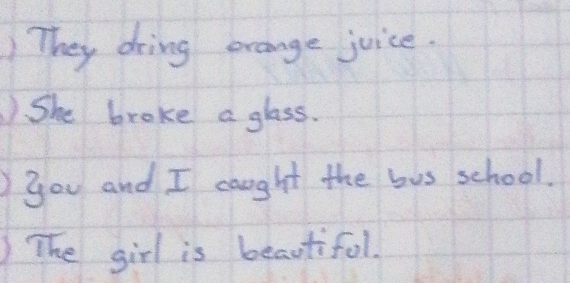 ) They dring orange juice.
) She broke a glass.
) You and I caught the bus school.
) The girl is beautiful.